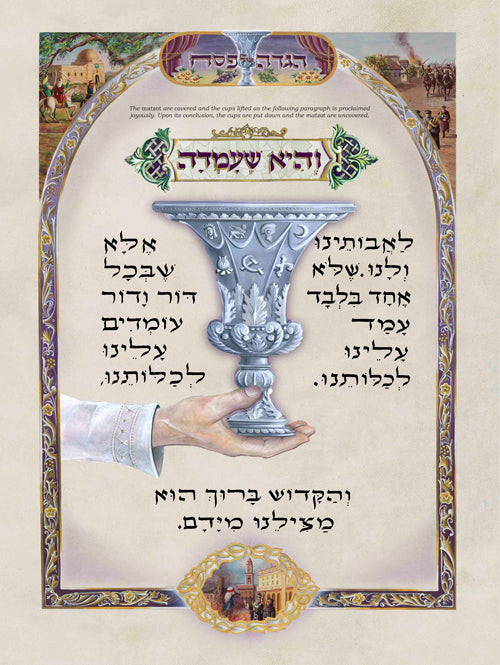 הגדה של פסח
The matzot are covered and the cups lifted as the following paragraph is proclaimed
joyously. Upon its conclusion, the cups are put down and the matzot are uncovered.
וְהִיא שֶׁעָמְדָה
לַאֲבוֹתֵינוּ
וְלָנוּ. שֶׁלֹּא
אֶחָד בִּלְבָד
עָמַד
עָלֵינוּ
לְכַלּוֹתֵנוּ.
אֶלָּא
שֶׁבְּכָל
דּוֹר וָדוֹר
עוֹמְדִים
עָלֵינוּ
לְכַלּוֹתֵנוּ,
וְהַקָּדוֹשׁ בָּרוּךְ הוּא
מַצִּילֵנוּ מִיָּדָם.